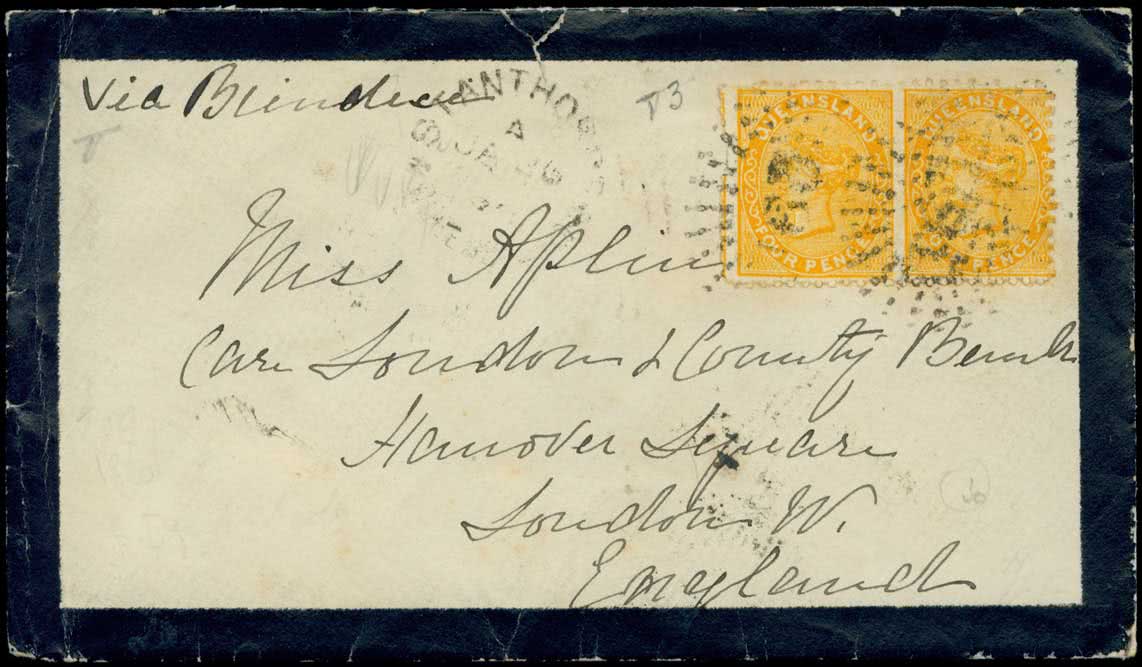 Via Brindisi
T 3
T
QUEENSLAND
FOUR PENCE
QUEENSLAND
PENCE
Miss Aplin
Care London & County Bank
Hanover Square
London W.
England